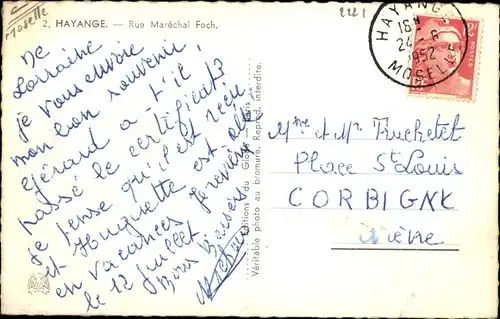 Moselle
2. HAYANGE. — Rue Maréchal Foch.
2221
HAYANGE
24-6
1952
MOSELLE
POSTES
De
Lorraine
je vous envoie
mon bon souvenir,
Gérard a-t-il
passé le certificat?
Je pense qu'il est reçu
et Huguette est-elle
en vacances je reviens
le 12 juillet
Bons Baisers
Editions du Globe
Véritable photo au bromure. Reprod. interdite.
Mme et Mr Truchetet
Place St Louis
CORBIGNY
Nièvre